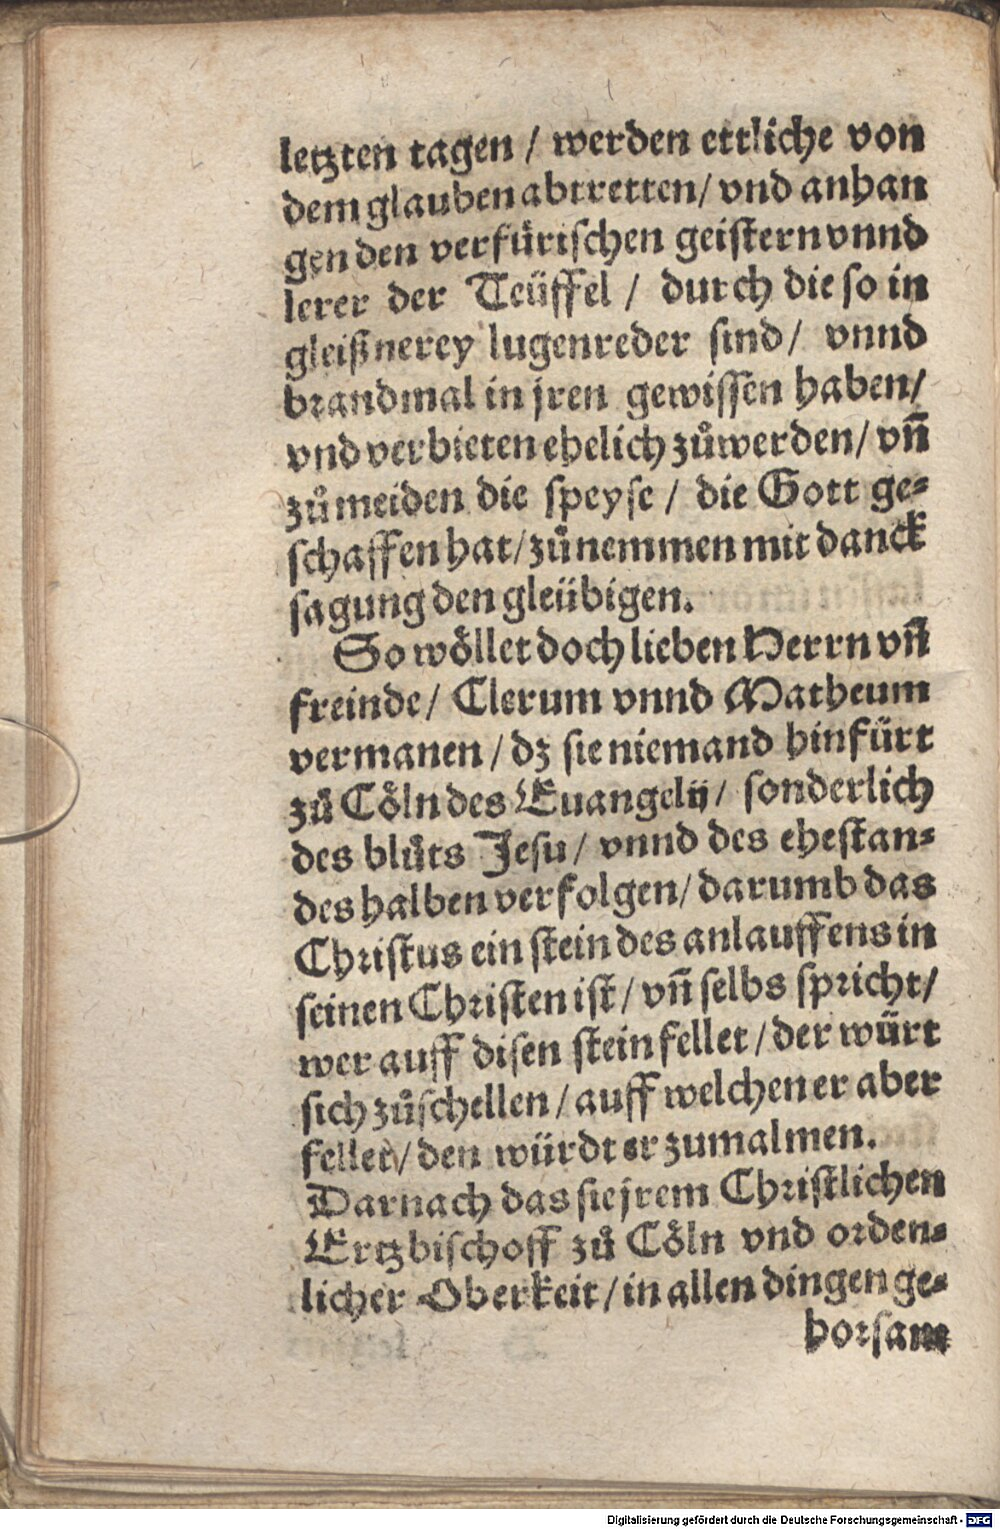 letzten tagen / werden ettliche von
dem glauben abtretten / vnd anhan
gen den verfürischen geistern vnnd
lerer der Teüffel / durch die so in
gleißnerey lugenreder sind / vnnd
brandmal in jren gewissen haben /
vnd verbieten ehelich zůwerden / vñ
zů meiden die speyse / die Gott ge⸗
schaffen hat / zů nemmen mit danck
sagung den gleübigen.
So wöllet doch lieben Herrn vñ
freinde / Clerum vnnd Matheum
vermanen / dz sie niemand hinfürt
zů Cöln des Euangelij / sonderlich
des blůts Jesu / vnnd des ehestan⸗
des halben verfolgen / darumb das
Christus ein stein des anlauffens in
seinen Christen ist / vñ selbs spricht /
wer auff disen stein fellet / der würt
sich zůschellen / auff welchen er aber
fellet / den würdt er zumalmen.
Darnach das sie jrem Christlichen
Ertzbischoff zů Cöln vnd orden⸗
licher Oberkeit / in allen dingen ge⸗
horsam
Digitalisierung gefördert durch die Deutsche Forschungsgemeinschaft - DFG